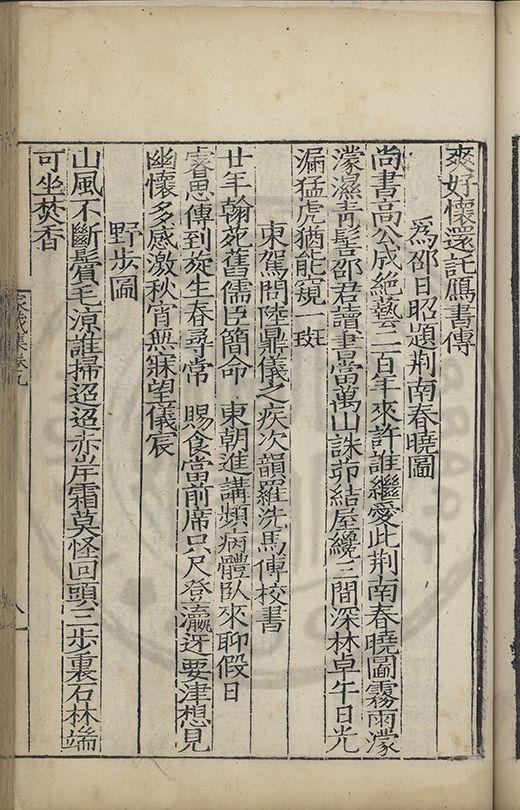 爽好懷還託鴈書傳
爲邵日昭題荆南春曉圖
尚書高公成絶藝二百年來許誰繼愛此荆南春曉圖霧雨濛
濛濕青髻邵君讀書當萬山誅茆結屋纔三間深林卓午日光
漏猛虎猶能窺一斑
東駕問陸鼎儀之疾次韻羅洗馬傅校書
廿年翰苑舊儒臣簡命 東朝進講頻病體臥來聊假日
睿思傳到旋生春尋常 賜食當前席只尺登瀛迓要津想見
幽懷多感激秋宵無寐望儀宸
野步圖
山風不斷鬢毛凉誰掃迢迢赤岸霜莫怪回頭三步重裏石林端
可坐焚香
家藏集卷九
八